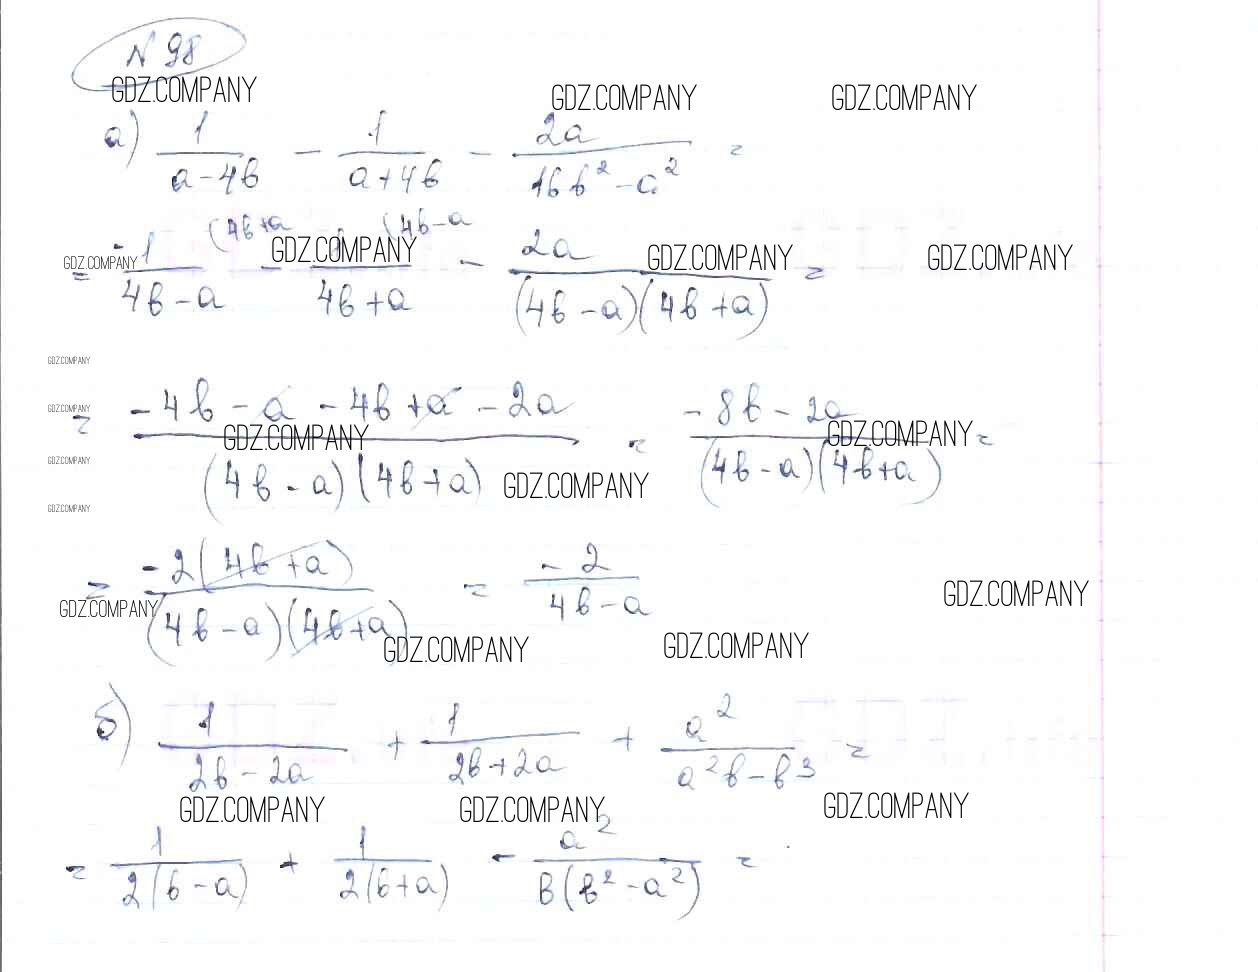 N 98
GDZ.COMPANY GDZ.COMPANY GDZ.COMPANY
а) 1/(a-4b) - 1/(a+4b) - 2a/(16b² - a²) =
GDZ.COMPANY GDZ.COMPANY GDZ.COMPANY GDZ.COMPANY
= -1/(4b-a) (4b+a - 1/(4b+a) (4b-a - 2a/((4b-a)(4b+a)) =
GDZ.COMPANY
GDZ.COMPANY
= (-4b - a - 4b + a - 2a)/((4b-a)(4b+a)) = (-8b - 2a)/((4b-a)(4b+a)) =
GDZ.COMPANY GDZ.COMPANY
GDZ.COMPANY GDZ.COMPANY
GDZ.COMPANY
= -2(4b+a)/((4b-a)(4b+a)) = -2/(4b-a)
GDZ.COMPANY GDZ.COMPANY
GDZ.COMPANY GDZ.COMPANY
б) 1/(2b-2a) + 1/(2b+2a) + a²/(a²b-b³) =
GDZ.COMPANY GDZ.COMPANY GDZ.COMPANY
= 1/(2(b-a)) + 1/(2(b+a)) - a²/(b(b²-a²)) =